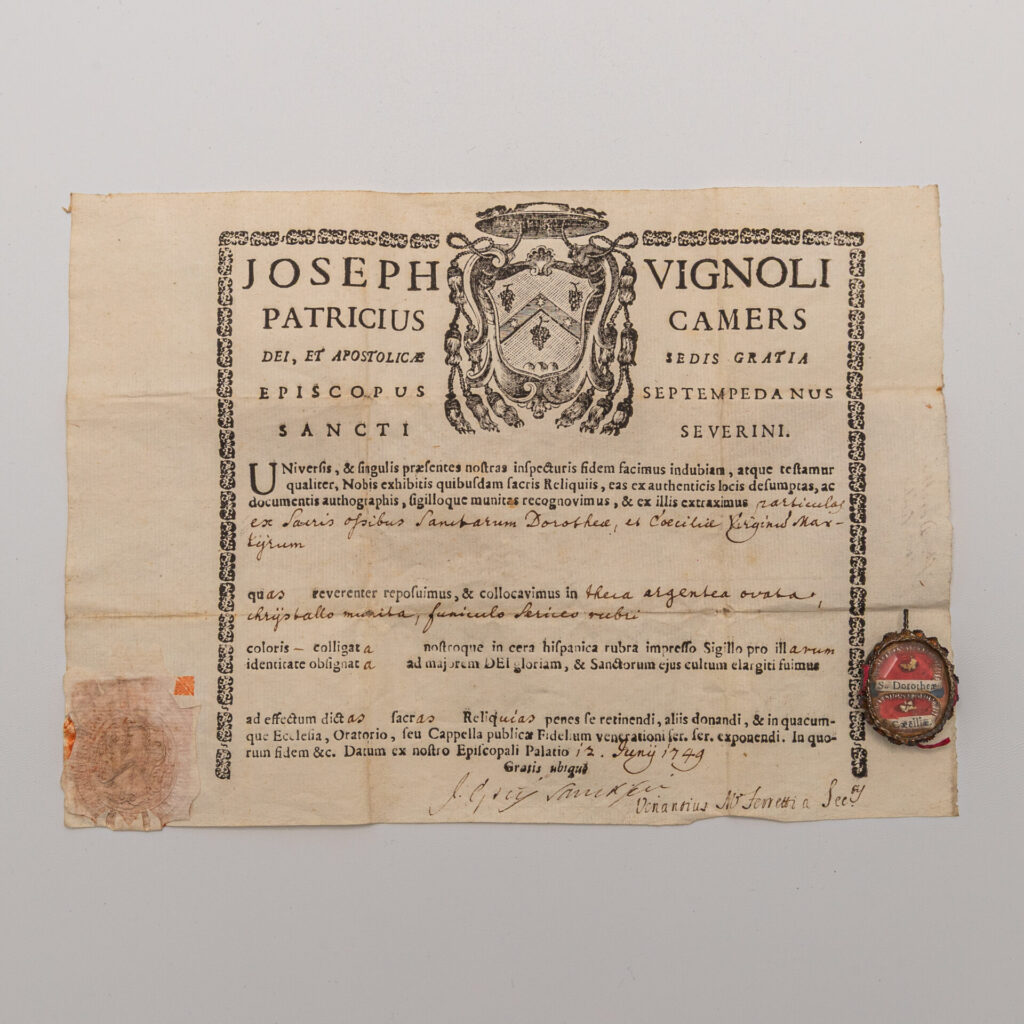 JOSEPH VIGNOLI
PATRICIUS CAMERS
DEI, ET APOSTOLICÆ SEDIS GRATIA
EPISCOPUS SEPTEMPEDANUS
SANCTI SEVERINI.
UNiversis, & singulis præsentes nostras inspecturis fidem facimus indubiam, atque testamur
qualiter, Nobis exhibitis quibusdam sacris Reliquiis, eas ex authenticis locis desumptas, ac
documentis authographis, sigilloque munitas recognovimus, & ex illis extraximus particulas
ex Sacris ossibus Sanctarum Dorotheæ, et Cœciliæ Virginus Mar-
tÿrum
quas reverenter reposuimus, & collocavimus in theca argentea ovata,
chrÿstallo munita, funiculo serico rubri
coloris – colligata nostroque in cera hispanica rubra impresso Sigillo pro illarum
identitate obsignata ad majorem DEI gloriam, & Sanctorum ejus cultum elargiti fuimus
ad effectum dictas sacras Reliquias penes se retinendi, aliis donandi, & in quacum-
que Ecclesia, Oratorio, seu Cappella publicæ Fidelium venerationi ser. ser. exponendi. In quo-
rum fidem &c. Datum ex nostro Episcopali Palatio 12. Junij 1749
Gratis ubique
Venantius Ferretti a Secrÿ
Dorotheæ
Cæciliæ